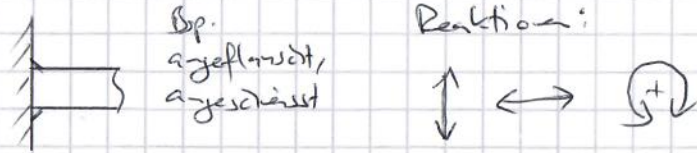 Bsp.
angeflanscht,
angeschweisst
Reaktionen:
+